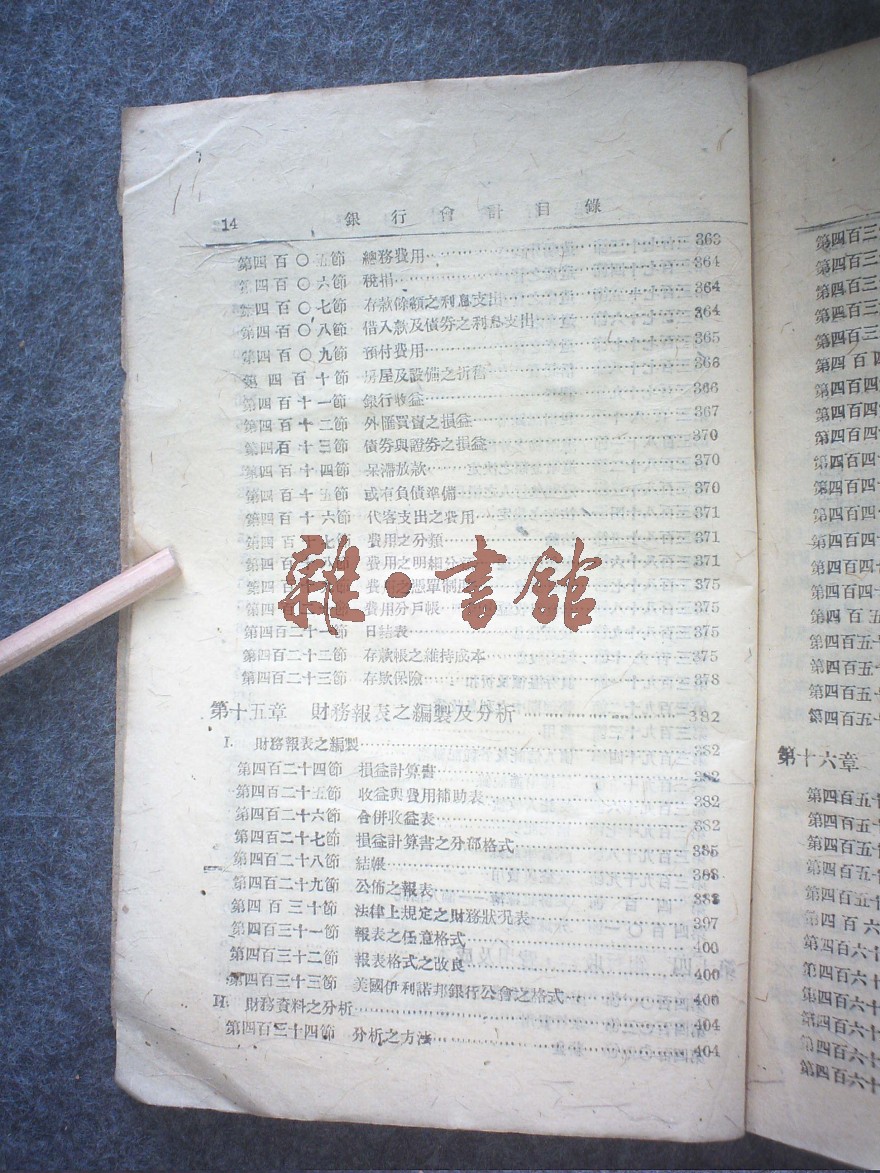 14 銀行會計目錄
第四百〇五節 總務費用 363
第四百〇六節 稅捐 364
第四百〇七節 存款餘額之利息支出 364
第四百〇八節 借入款及債券之利息支出 364
第四百〇九節 預付費用 365
第四百十節 房屋及設備之折舊 366
第四百十一節 銀行收益 366
第四百十二節 外匯買賣之損益 367
第四百十三節 債券與證券之損益 370
第四百十四節 呆滯放款 370
第四百十五節 或有負債準備 370
第四百十六節 代客支出之費用 371
第四百十七節 費用之分類 371
八節 費用之明細分 371
節 費 之憑單制 375
第四百二 費用分戶帳 375
第四百二十一節 日結表 375
第四百二十二節 存款帳之維持成本 375
第四百二十三節 存款保險 378
第十五章 財務報表之編製及分析 382
I. 財務報表之編製 382
第四百二十四節 損益計算書 382
第四百二十五節 收益與費用補助表 382
第四百二十六節 合併收益表 382
第四百二十七節 損益計算書之分部格式 385
第四百二十八節 結帳 388
第四百二十九節 公佈之報表 388
第四百三十節 法律上規定之財務狀況表 397
第四百三十一節 報表之任意格式 400
第四百三十二節 報表格式之改良 400
第四百三十三節 美國伊利諾邦銀行公會之格式 400
II. 財務資料之分析 404
第四百三十四節 分析之方法 404
雜·書館
第四百三
第四百三
第四百三
第四百三
第四百三
第四百四
第四百四
第四百四
第四百四
第四百四
第四百四
第四百四
第四百四
第四百四
第四百四
第四百五
第四百五
第四百五
第四百五
第四百五
第十六章
第四百五
第四百五
第四百五
第四百五
第四百五
第四百六
第四百六十
第四百六十
第四百六十
第四百六十
第四百六十
第四百六十